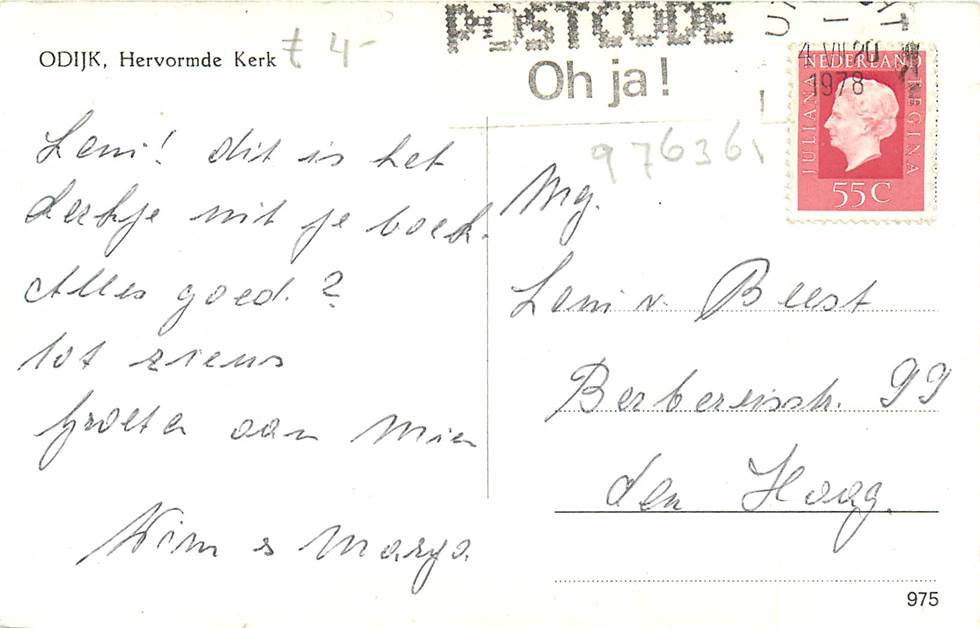 ODIJK, Hervormde Kerk
£ 4-
POSTCODE
Oh ja!
4 VII 20
1978
NEDERLAND
JULIANA
REGINA
55C
976361
Leni! dit is het
kerkje uit je boek.
Alles goed?
tot ziens
groeten aan Mien
Wim & Marga
Mej.
Leni v. Beest
Berberisstr. 99
den Haag.
975